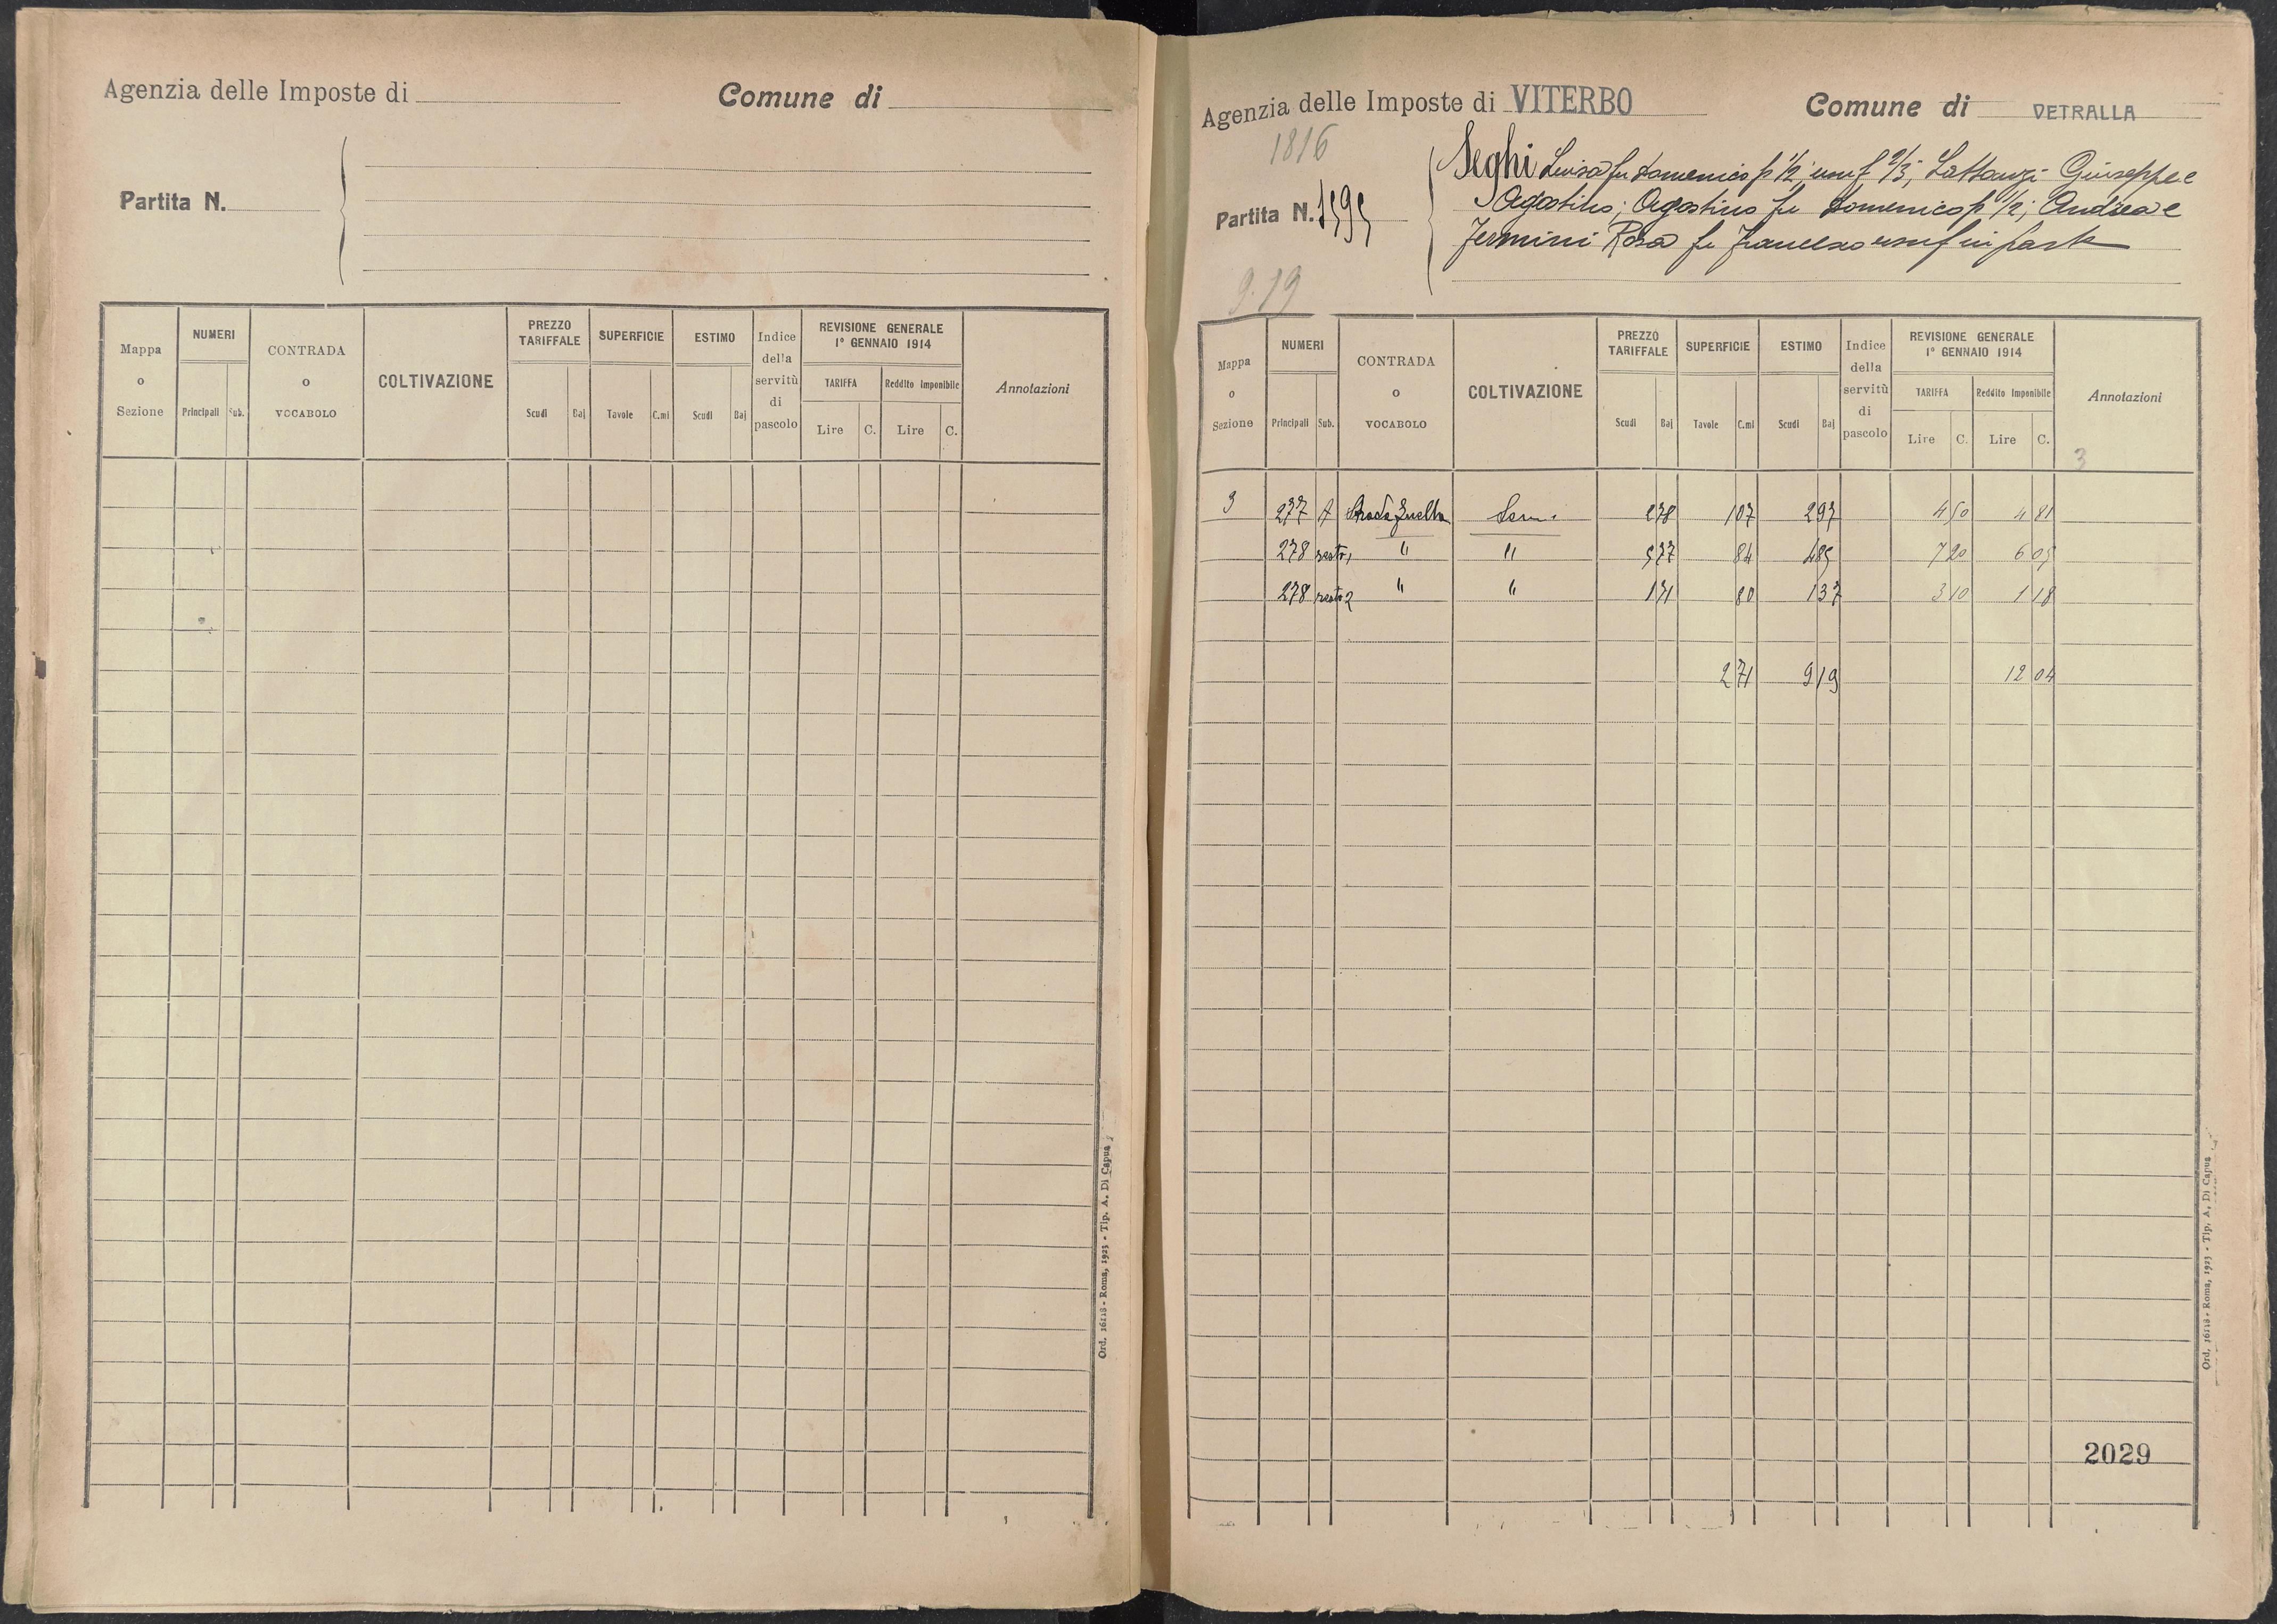 Agenzia delle Imposte di
Comune di
Partita N.
Mappa o Sezione
NUMERI
Principali Sub.
CONTRADA o VOCABOLO
COLTIVAZIONE
PREZZO TARIFFALE
Scudi Baj
SUPERFICIE
Tavole C.mi
ESTIMO
Scudi Baj
Indice della servitù di pascolo
REVISIONE GENERALE
1° GENNAIO 1914
TARIFFA Reddito Imponibile
Lire C. Lire C.
Annotazioni
Ord. 16118 - Roma, 1923 - Tip. A. Di Capua
Agenzia delle Imposte di VITERBO
Comune di VETRALLA
1816
Partita N. 1595
Seghi Luisa fu Domenico p 1/2, usuf 2/3; Lattanzi Giuseppe e
Agostino; Agostino fu Domenico p 1/2; Andrea e
Fermini Rosa fu Francesco usuf in parte
9.19
Mappa o Sezione
NUMERI
Principali Sub.
CONTRADA o VOCABOLO
COLTIVAZIONE
PREZZO TARIFFALE
Scudi Baj
SUPERFICIE
Tavole C.mi
ESTIMO
Scudi Baj
Indice della servitù di pascolo
REVISIONE GENERALE
1° GENNAIO 1914
TARIFFA Reddito Imponibile
Lire C. Lire C.
Annotazioni
3
3 277 Sem. 2 78 1 07 2 97 4 50 4 81
278 resto 1 " " 5 77 84 4 85 7 20 6 05
278 resto 2 " " 1 71 80 1 37 3 10 1 18
2 71 9 19 12 04
2029
Ord. 16118 - Roma, 1923 - Tip. A. Di Capua